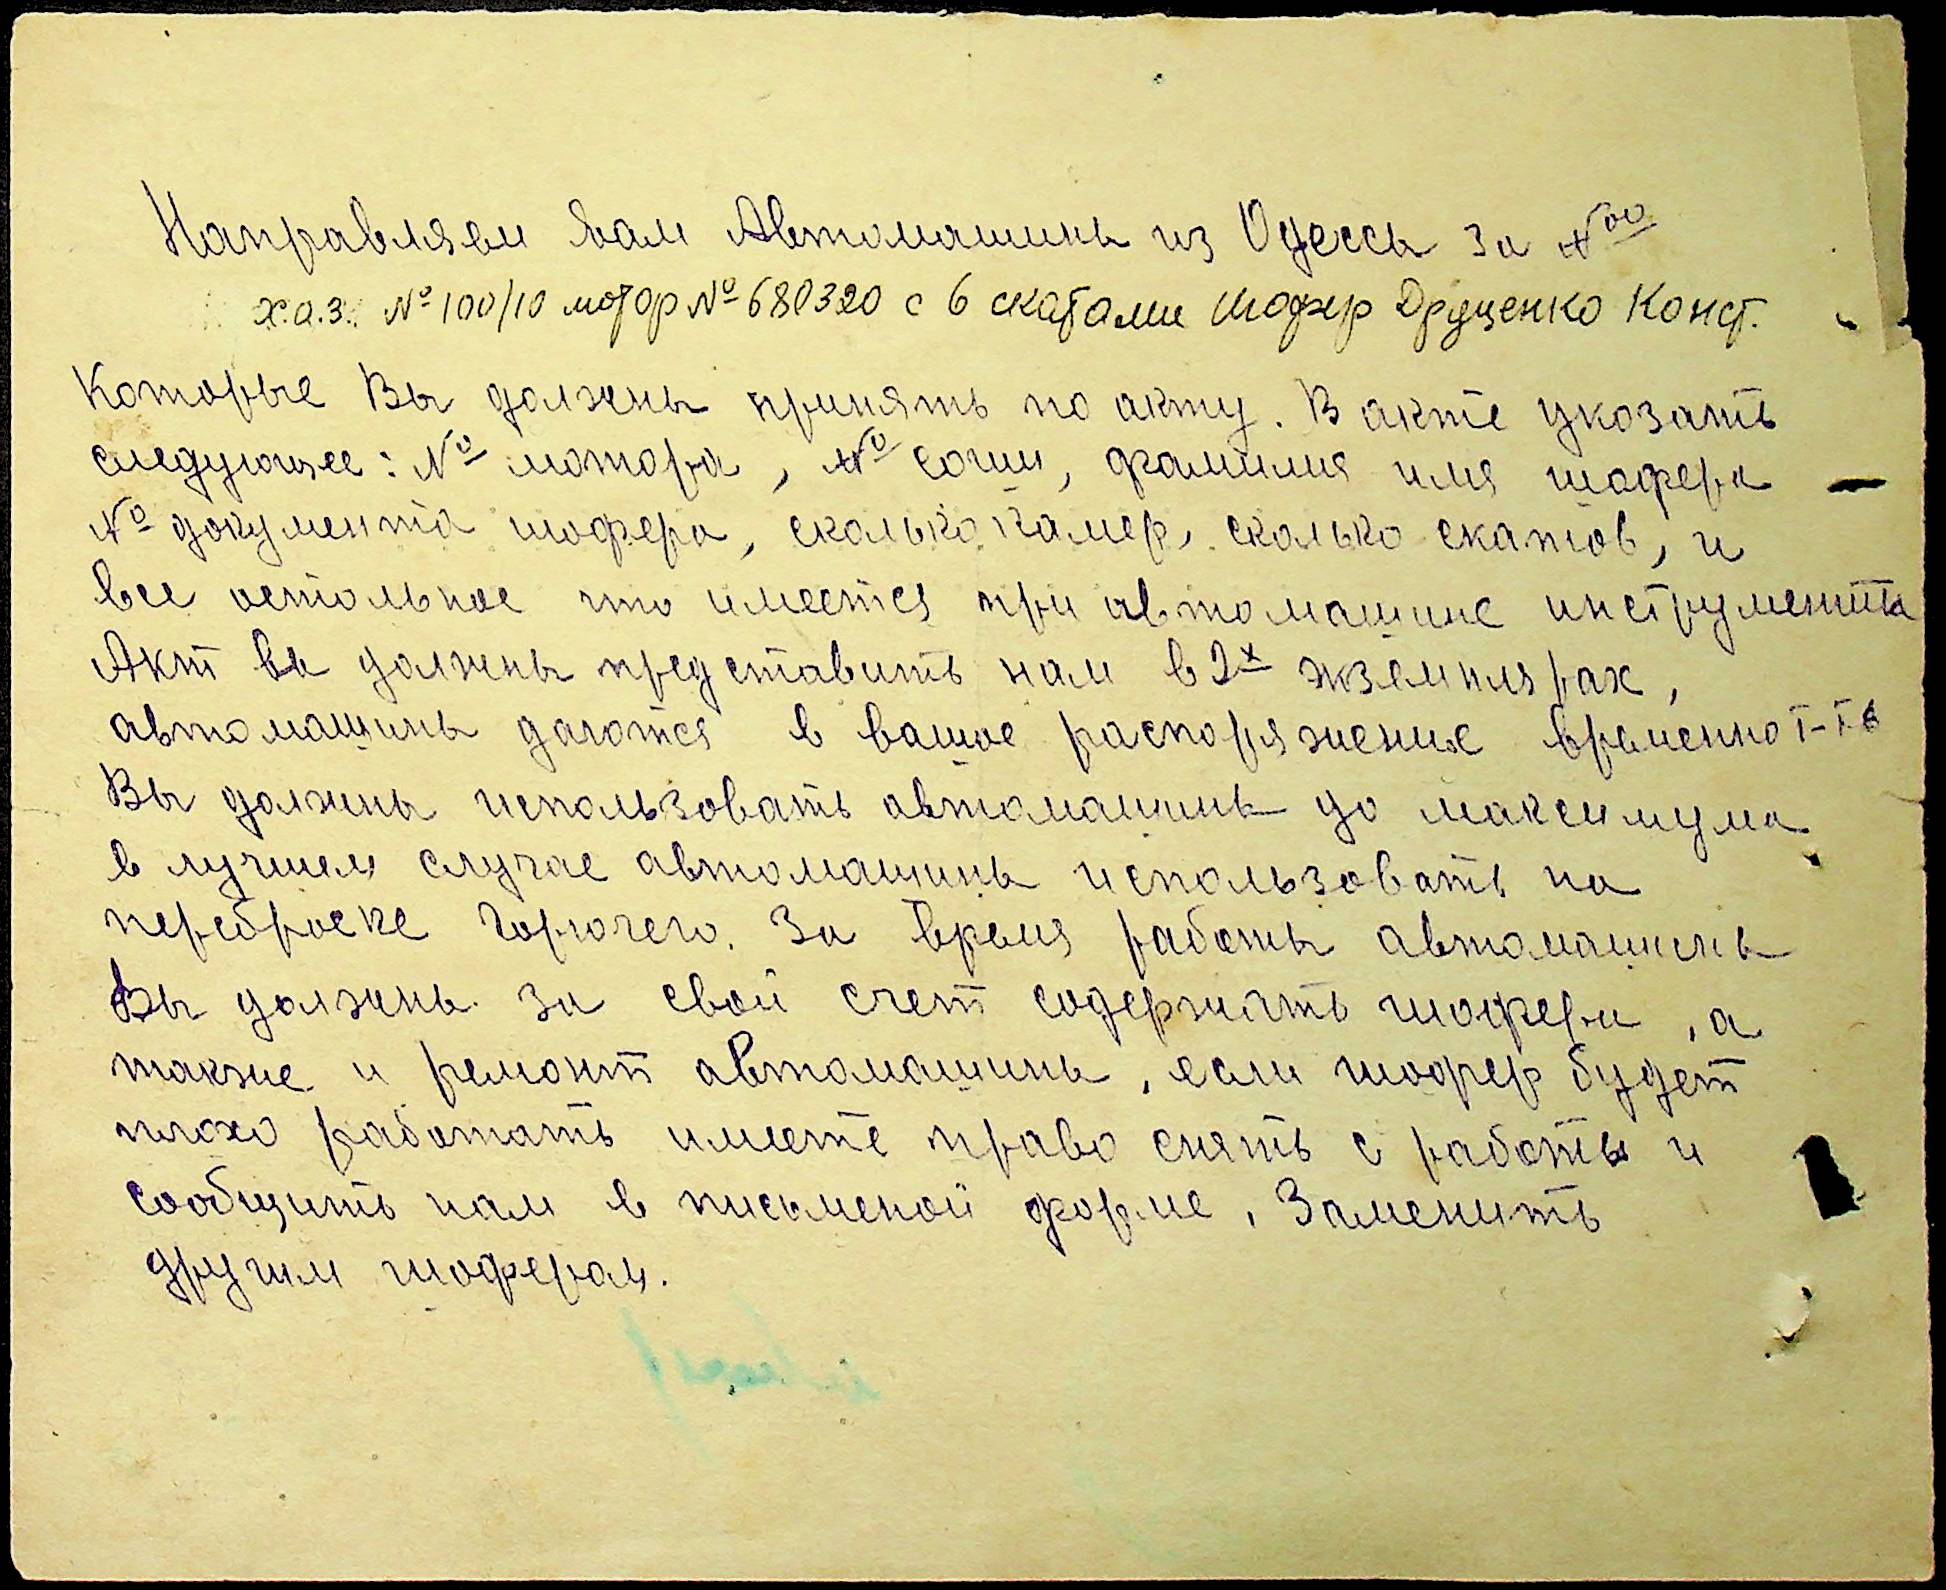 Направляем вам Автомашины из Одессы за №№
х.а.з. № 100/10 мотор № 680320 с 6 скатами шофер Друценко Конст.
Которые Вы должны принять по акту. В акте указать
следующее: № мотора, № соши, фамилия имя шофера
№ документа шофера, сколько камер, сколько скатов, и
все остольное что имеется при автомашине инструмента
Акт вы должны представить нам в 2х экземплярах,
автомашины даются в ваше распоряжение временно
Вы должны использовать автомашины до максимума
в лучшем случае автомашины использовать на
переброске горючего. За время работы автомашины
Вы должны за свой счет содержать шофера, а
также и ремонт автомашины, если шофер будет
плохо работать имеете право снять с работы и
сообщить нам в письменой форме, Заменить
другим шофером.